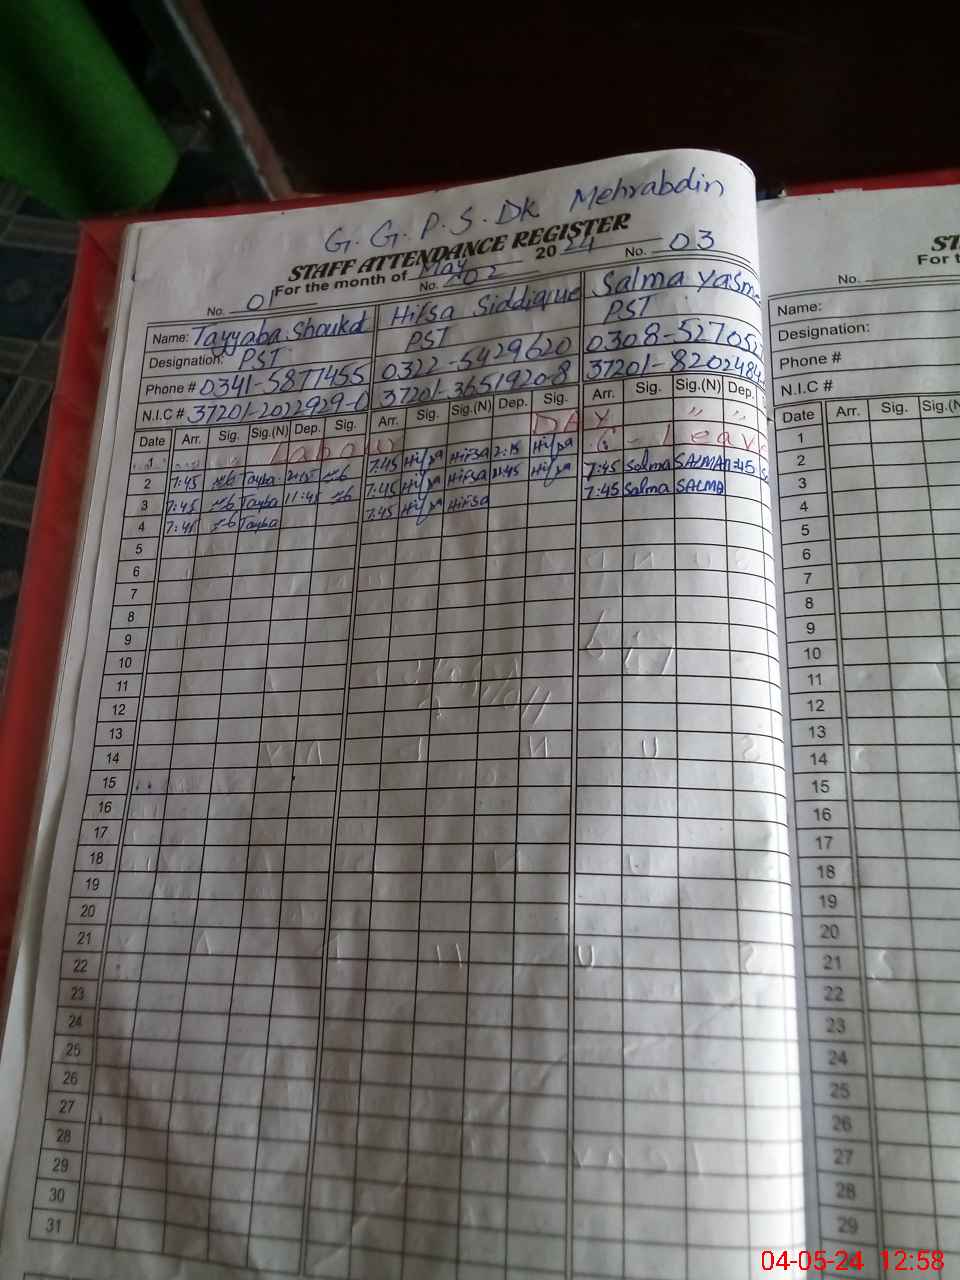 G. G. P. S. Dk Mehrabdin
STAFF ATTENDANCE REGISTER
For the month of May 2024
No. 01 No. 02 No. 03
Name: Tayyaba Shoukat Hifsa Siddique Salma Yasm
Designation: PST PST PST
Phone # 0341-5877455 0322-5429620 0308-52705
N.I.C # 37201-2022929-0 37201-3651920-8 37201-8202484
Date Arr. Sig. Sig.(N) Dep. Sig. Arr. Sig. Sig.(N) Dep. Sig. Arr. Sig. Sig.(N) Dep.
Labour DAY " "
2 7:45 Tayba 7:45 Hifsa Hifsa 2:15 Hifsa Leave
3 7:45 Tayba 11:45 7:45 Hifsa Hifsa 11:45 Hifsa 7:45 Salma SALMA 11:45
4 7:45 Tayba 7:45 Hifsa Hifsa 7:45 Salma SALMA
5
6
7
8
9
10
11
12
13
14
15
16
17
18
19
20
21
22
23
24
25
26
27
28
29
30
31
ST
For t
No.
Name:
Designation:
Phone #
N.I.C #
Date Arr. Sig. Sig.(N
1
2
3
4
5
6
7
8
9
10
11
12
13
14
15
16
17
18
19
20
21
22
23
24
25
26
27
28
29
04-05-24 12:58